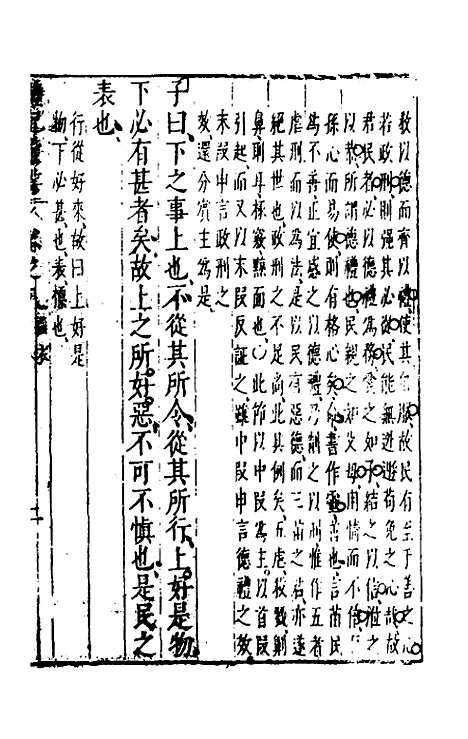 教以德而齊以禮使其無□故民有至于善之心
若政刑則強其必改民能無遁避苟免之心哉故
君民者必以德禮為務愛之如子結之以信涖之
以恭所謂德禮也民親之如父母用情而不倍
孫心而易使則有格心矣命書作靈善也言苗民
為不善正宜感之以德禮乃制之以刑惟作五者
虐刑而以為法是以民有惡德而三苗之君亦遂
絕其世也政刑之不足尚此具例矣五虐殺戮劓
鼻刵耳椓竅黥面也○此節以中段為主以首段
引起而又以末段反証之雖中段申言德禮之效
末段申言政刑之
效還分賓主為是
子曰下之事上也不從其所令從其所行上好是物
下必有甚者矣故上之所好惡不可不慎也是民之
表也
行從好來故曰上好是
物下必甚也表標也